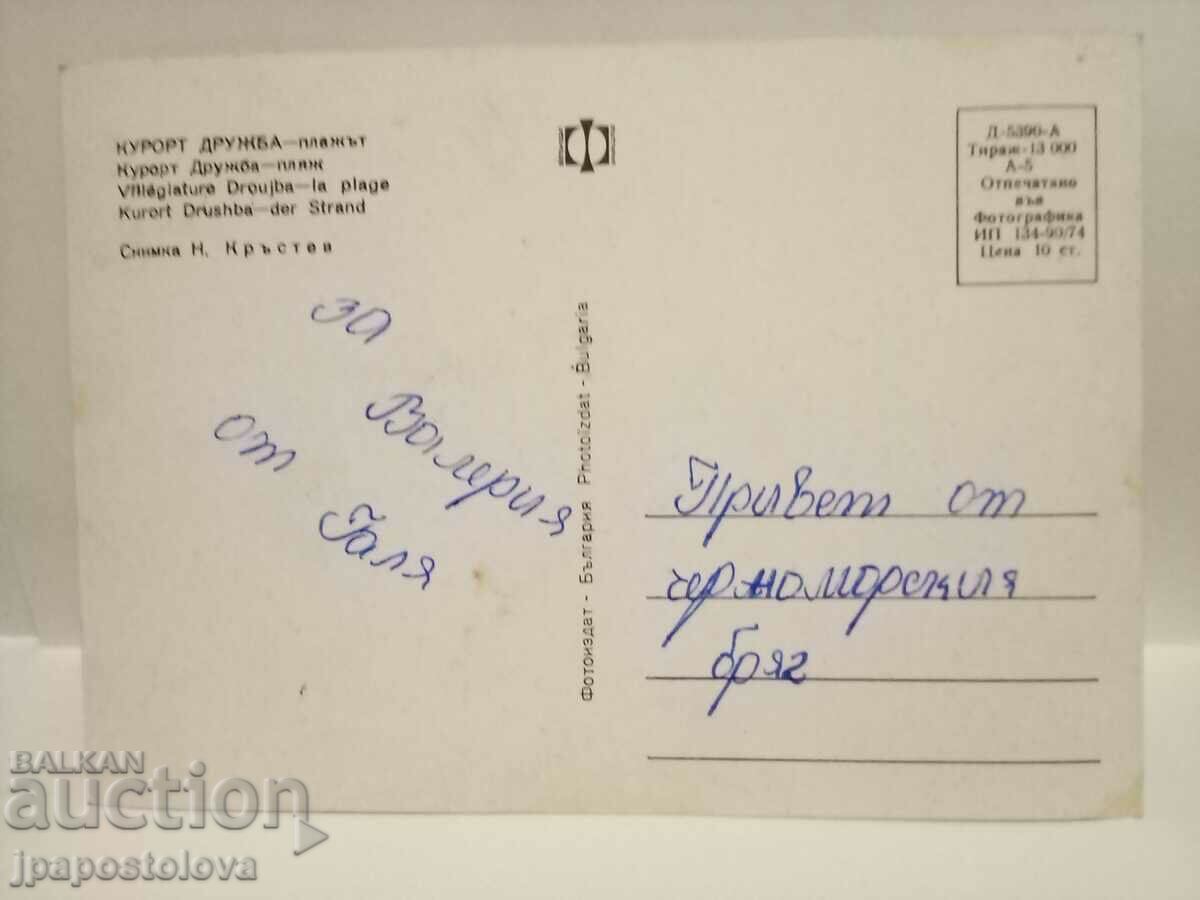 КУРОРТ ДРУЖБА—плажът
Курорт Дружба—пляж
Villégiature Droujba—la plage
Kurort Drushba—der Strand
Снимка Н. Кръстев
за
Валерия
от
Галя
Фотоиздат - България Photoizdat - Bulgaria
Д-5390-А
Тираж-13 000
А-5
Отпечатано
във
Фотографика
ИП 134-90/74
Цена 10 ст.
Привет от
черноморския
бряг
BALKAN
auction
jpapostolova